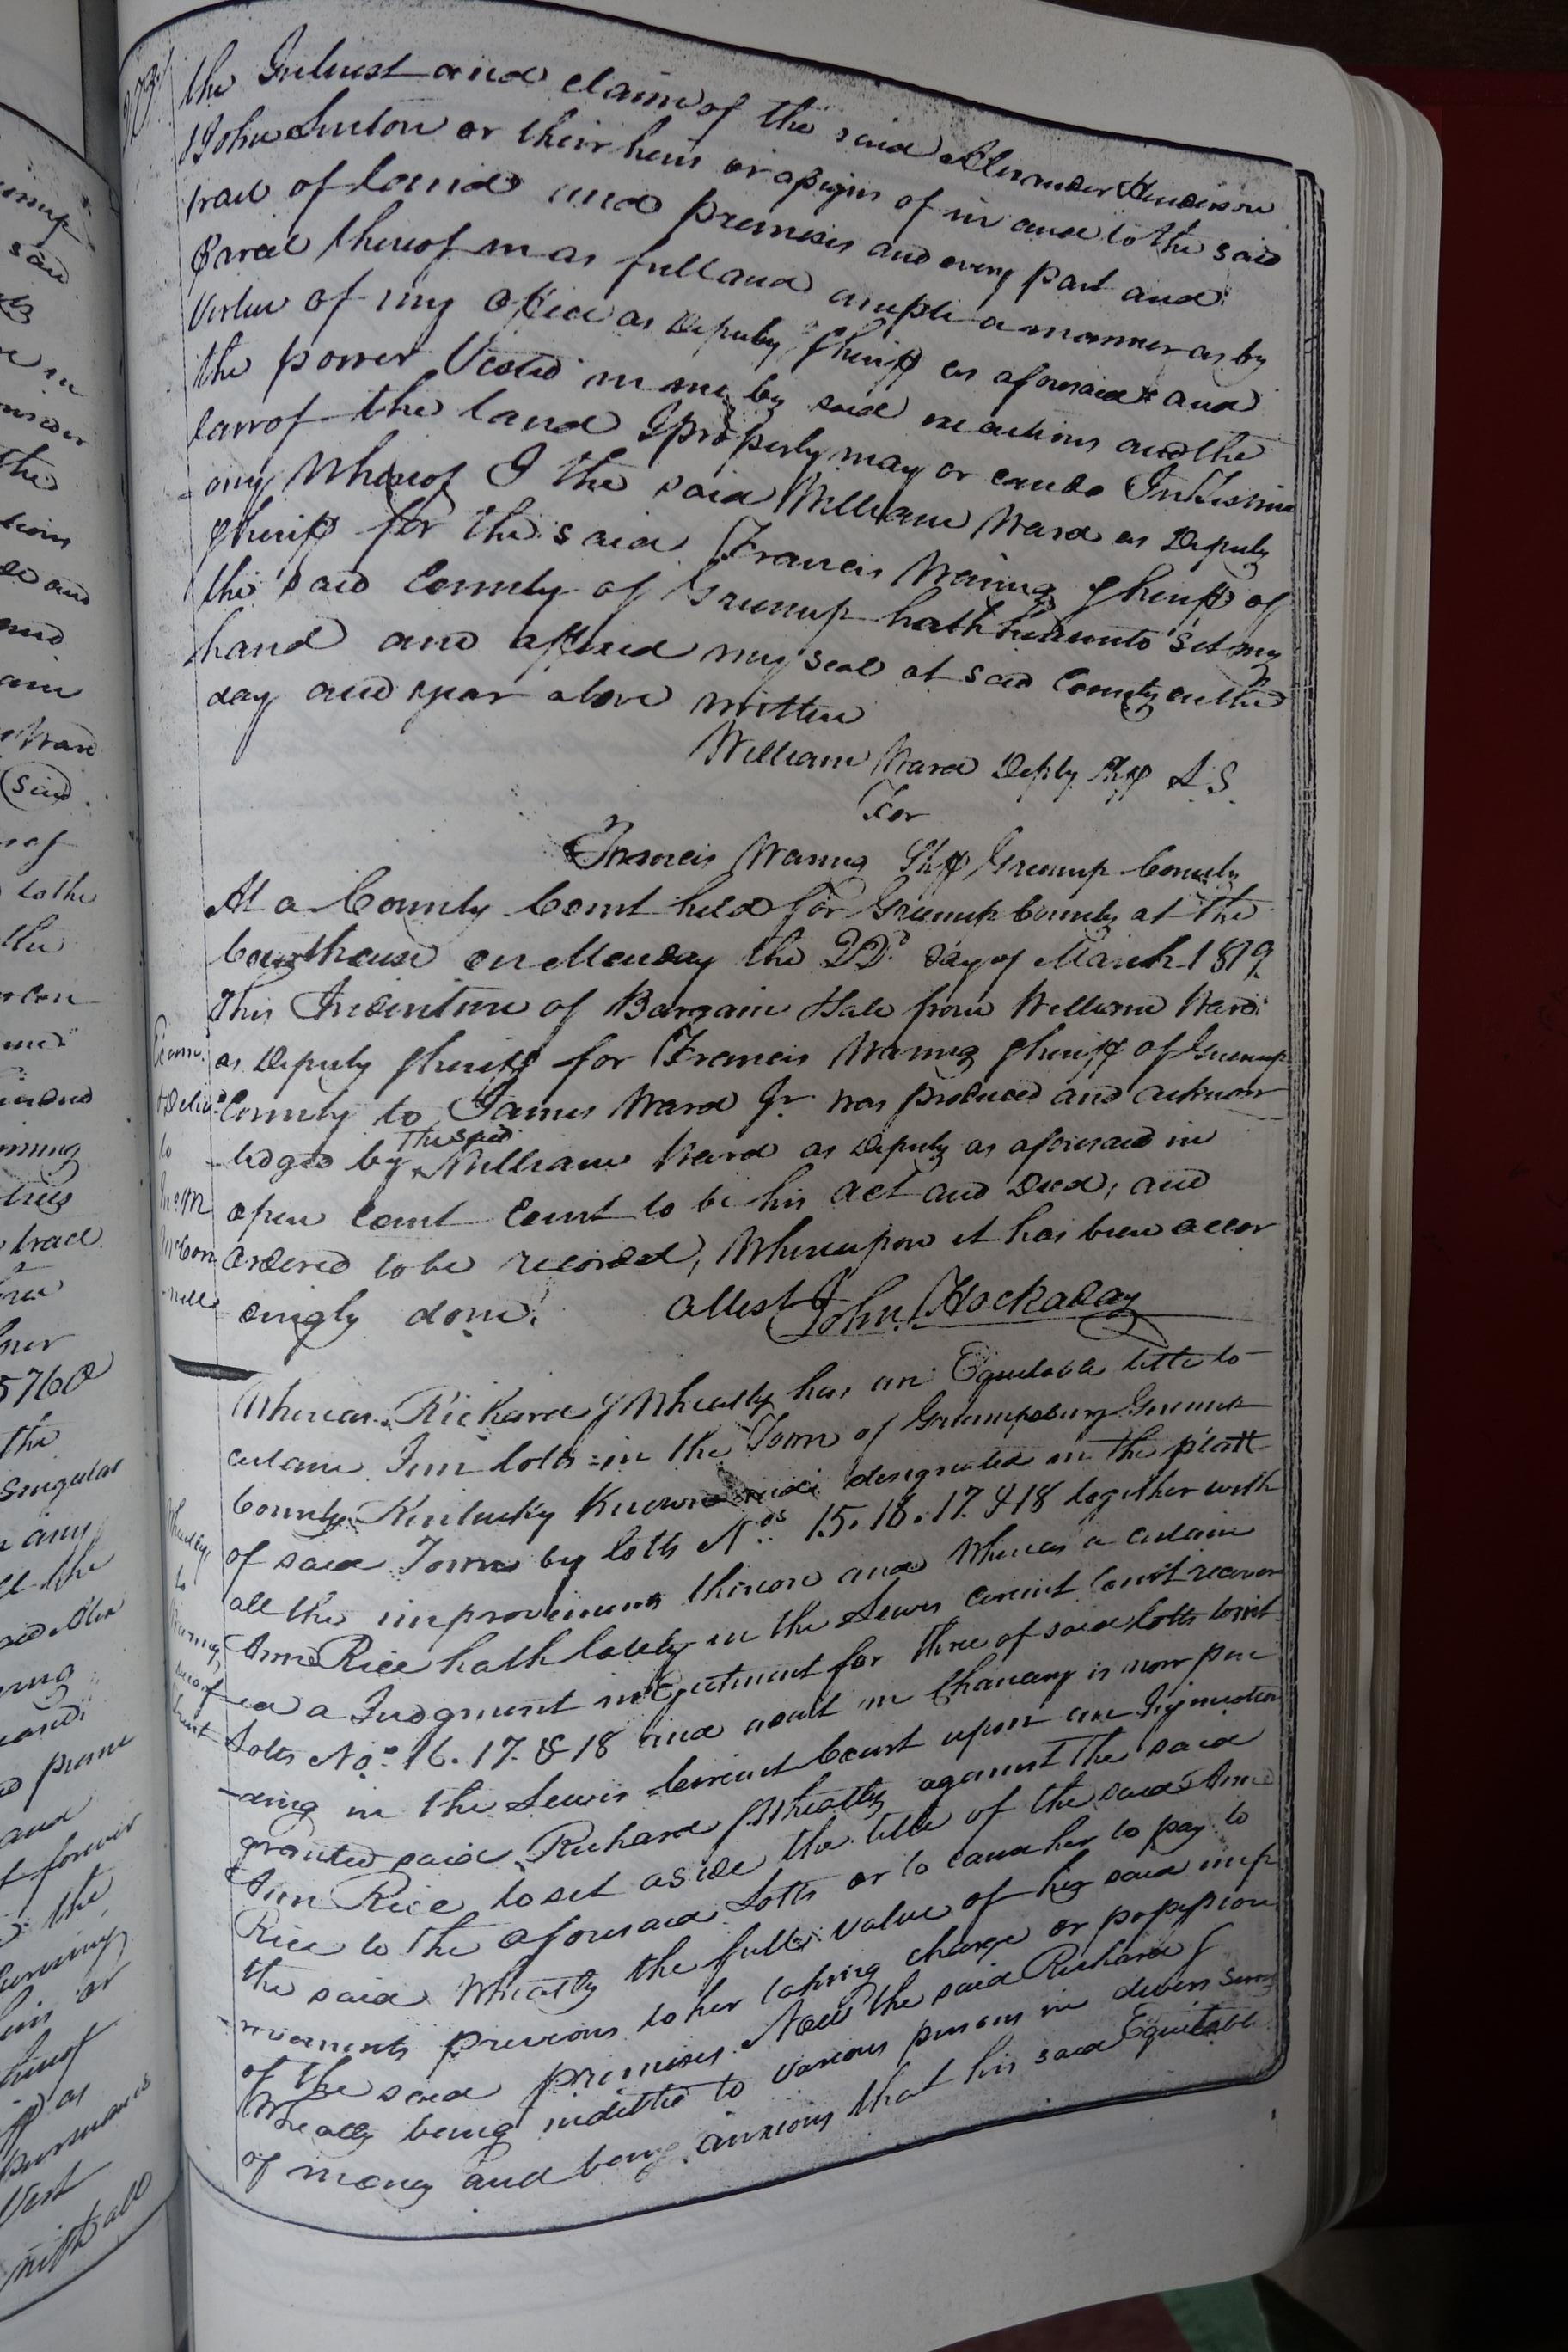 the Interest and claim of the said Alexander Henderson
& John Suiton or their heirs or assigns of in and to the said
tract of land and premises and every part and
parcel thereof in as full and ample a manner as by
Virtue of my office as Deputy Sheriff as aforesaid and
the power Vested in me by said executions and the
law of the land I properly may or can do In Testim
-ony Whereof I the said William Ward as Deputy
Sheriff for the said Francis Waring Sheriff of
the said County of Greenup hath hereunto set my
hand and affixed my seal at said County on the
day and year above written
William Ward Depty Shff L.S.
For
Francis Waring Shff Greenup County
At a County Court held for Greenup County at the
Courthouse on Monday the 22d day of March 1819
This Indenture of Bargain & Sale from William Ward
as Deputy Sheriff for Francis Waring Sheriff of Greenup
County to James Ward Jr was produced and acknow
-ledged by the said William Ward as Deputy as aforesaid in
open Court Court to be his act and Deed, and
ordered to be recorded, Whereupon it has been accor
dingly done.
attest John Hockaday
Exam.
& Delivd
to
Jno M
McCon
-nell
Whereas Richard J Wheatly has an Equitable title to
certain Four lotts in the Town of Greenupsburg Greenup
County Kentucky Known and designated in the platt
of said Town by lotts Nos 15. 16. 17. & 18 together with
all the improvements thereon and Whereas a certain
Ann Rice hath lately in the Lewis circuit Court recover
ed a Judgment in Ejectment for three of said lotts towit
Lotts No. 16. 17. & 18 and a suit in Chancery is now pen
-ding in the Lewis Circuit Court upon an Injunction
granted said Richard J Wheatly against the said
Ann Rice to set aside the title of the said Ann
Rice to the aforesaid Lotts or to cause her to pay to
the said Wheatly the full value of his said imp
-rovements previous to her taking charge or possession
of the said premises. Now the said Richard J
Wheatly being indebted to various persons in divers sums
of money and being anxious that his said Equitable
Wheatly
to
Waring
deed of
trust